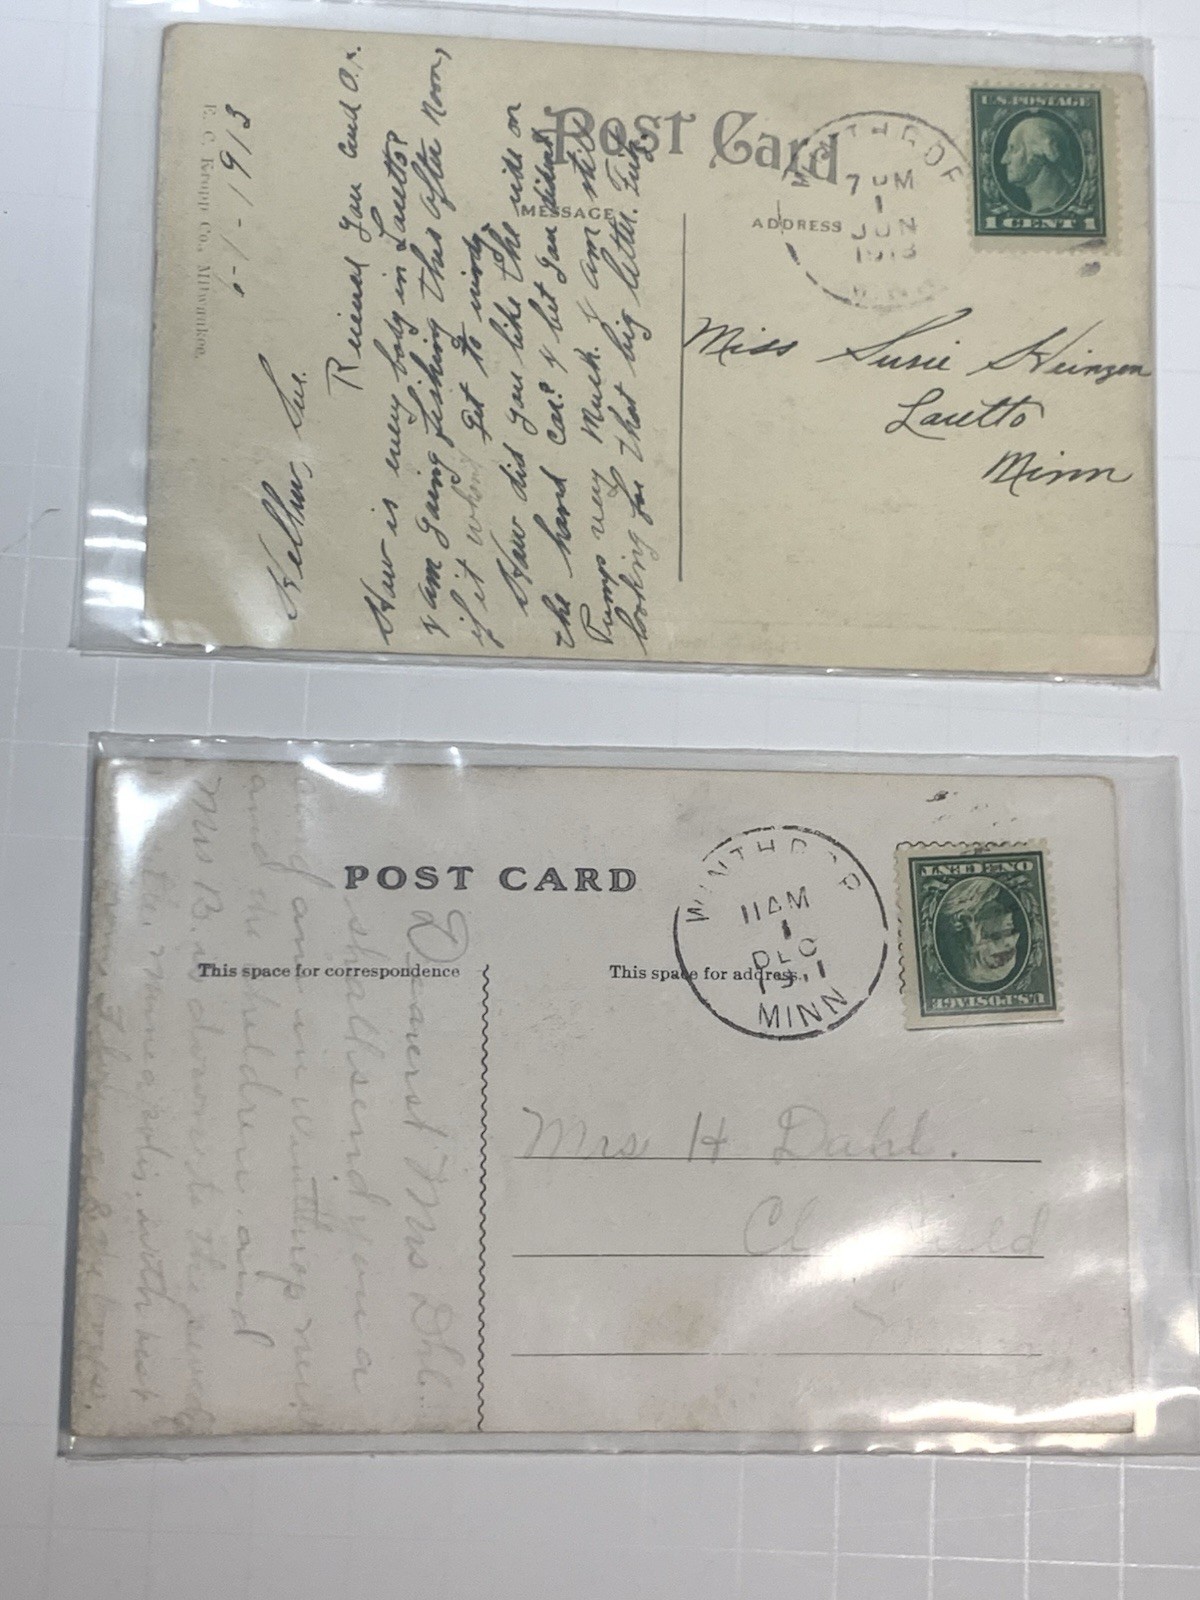 POST CARD
MESSAGE
ADDRESS
E. C. Kropp Co., Milwaukee.
6-1-1913
Hellow, Sue.
Recieved you card O.K.
How is every body in Lauetto?
I am going fishing this after noon,
if it get to windy.
How did you like the ride on
the hand car? I bet you didend
Pump very much. I am still
looking for that big letter.
WINTHROP
7 PM
1
JUN
1913
MINN.
U.S. POSTAGE
1 CENT 1
Miss Susie Heinzen
Lauetto
Minn
POST CARD
This space for correspondence
This space for address.
Dearest Mrs Dhl.
shall send you a
and am in Winthrop
and the children and
Mrs B. is down to the
minneapolis. with best
WINTHROP
11 AM
1
DEC
MINN
U.S. POSTAGE
ONE CENT
Mrs H Dahl.